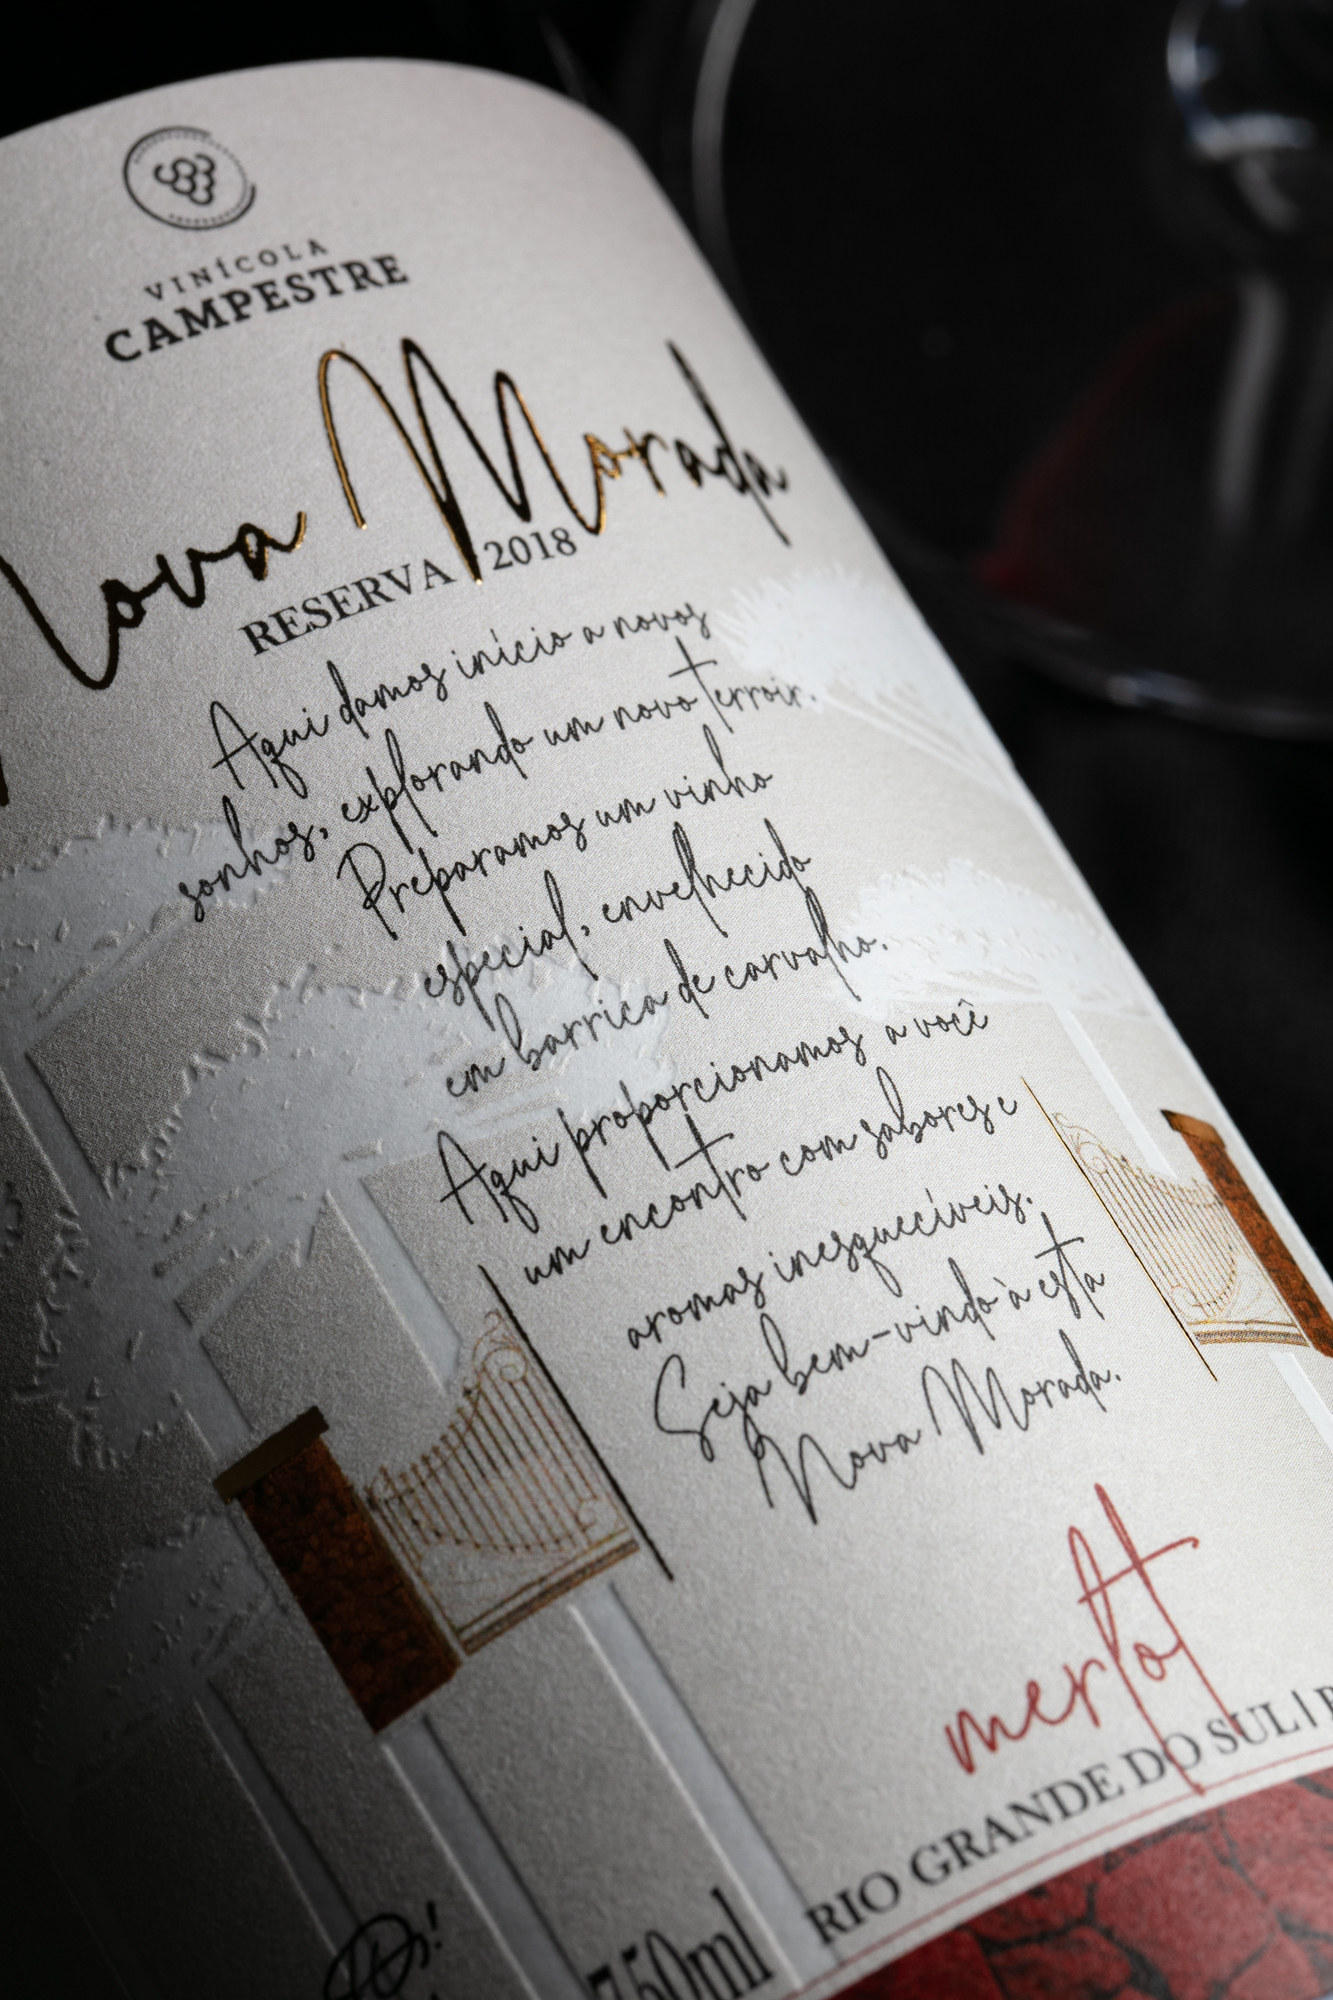 VINÍCOLA
CAMPESTRE
Nova Morada
RESERVA 2018
Aqui damos início a novos
sonhos, explorando um novo terroir.
Preparamos um vinho
especial, envelhecido
em barrica de carvalho.
Aqui proporcionamos a você
um encontro com sabores e
aromas inesquecíveis.
Seja bem-vindo à esta
Nova Morada.
merlot
RIO GRANDE DO SUL |
750ml